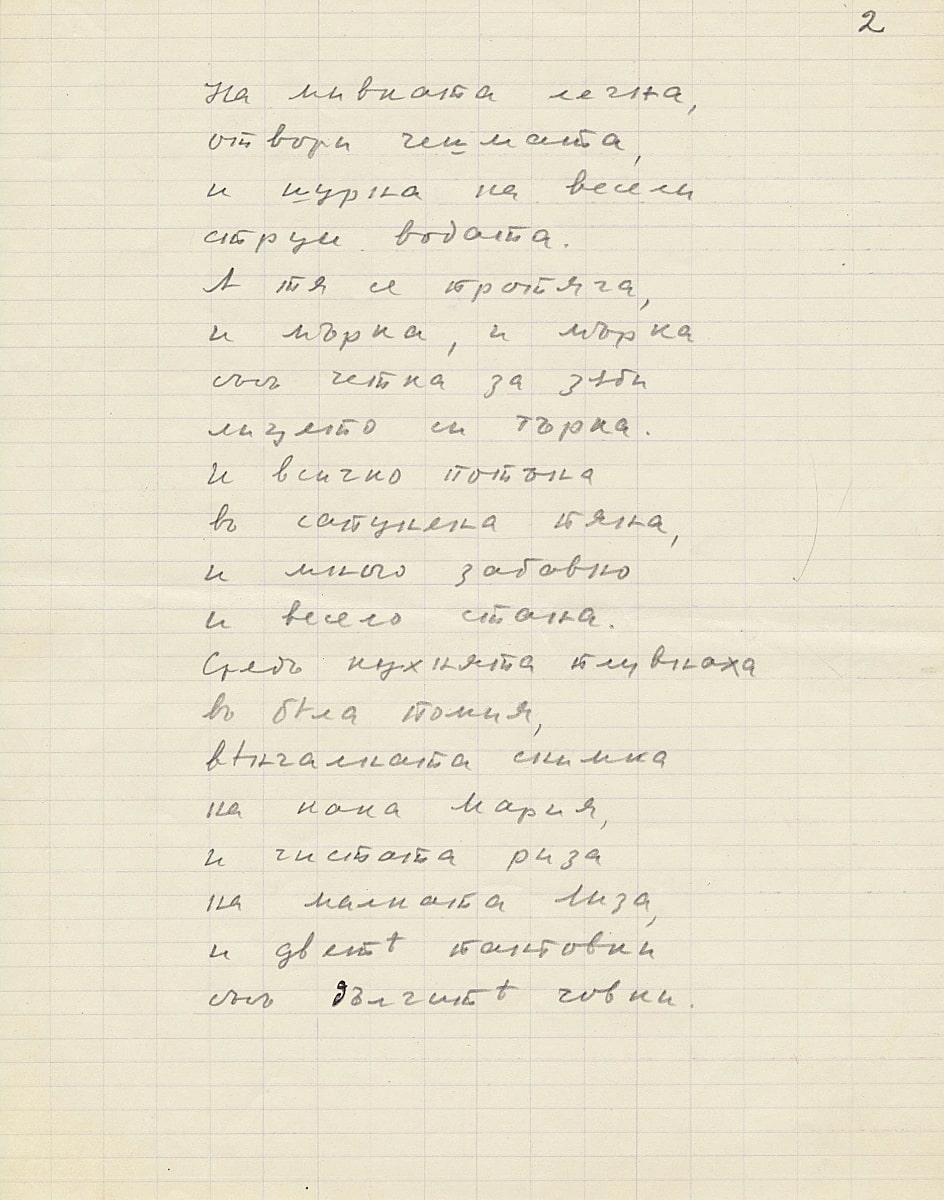 2
На мивката легна,
отвори чешмата,
и шурна на весели
струи водата.
А тя се протяга,
и мърка, и мърка
съсъ четка за зѫби
лицето си търка.
И всичко потъна
въ сапунена пяна,
и много забавно
и весело стана.
Средъ кухнята плувнаха
въ бѣла помия,
вѣнчалната снимка
на кака Мария,
и чистата риза
на малката Лиза,
и дветѣ пантовки
съсъ дългитѣ човки.